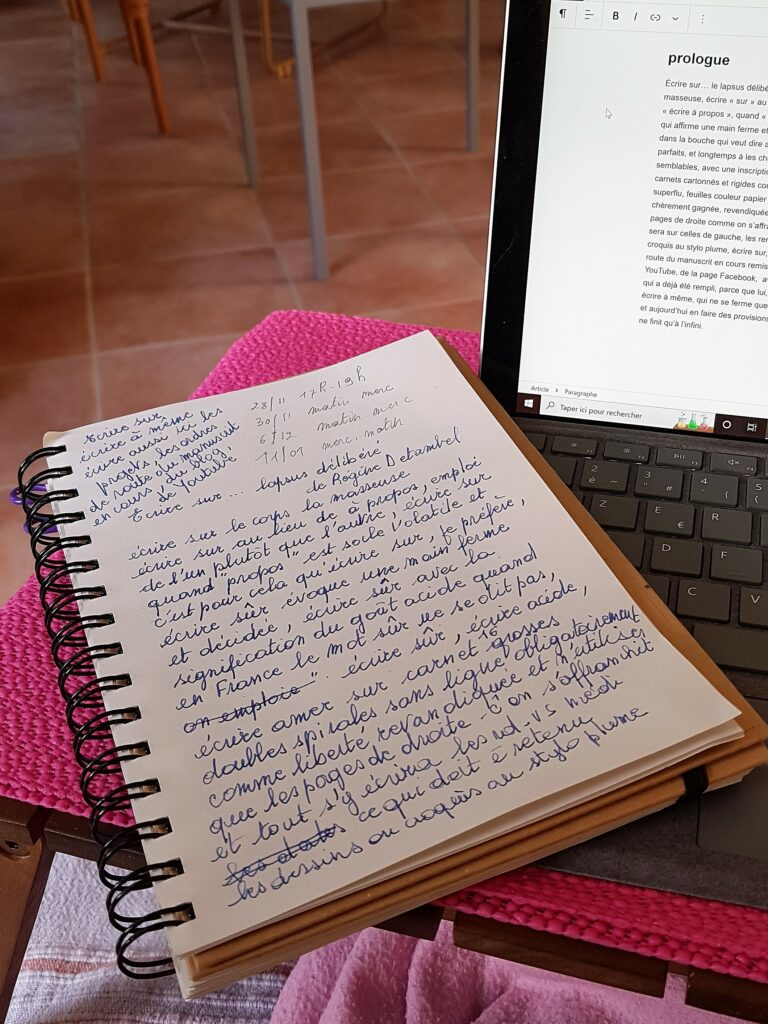 Ecrire sur
écrire à même
écrire aussi ici les
projets, les ordres
de route du manuscrit
en cours, du blog,
de Youtube
28/11 17h-19h
30/11 matin merc
6/12 matin merc.
11/01 merc. matin
Ecrire sur... lapsus délibéré
de Régine Detambel
écrire sur le corps la masseuse
écrire sur au lieu de à propos, emploi
de l'un plutôt que l'autre, écrire sur
quand "propos" est so le volatile et
c'est pour cela qu'écrire sur, je préfère,
écrire sûr évoque une main ferme
et décidée, écrire sûr avec la
signification du goût acide quand
en France le mot sûr ne se dit pas,
on emploie ". écrire sûr, écrire acide,
écrire amer sur carnet 16 grosses
doubles spirales sans ligne obligatoirement
comme liberté revandiquée et n'utiliser
que les pages de droite on s'affranchit
et tout s'y écrira les rd-vs médi
les dates ce qui doit ê retenu
les dessins ou croquis au stylo plume
prologue
Écrire sur… le lapsus délibé
masseuse, écrire « sur » au
« écrire à propos », quand «
qui affirme une main ferme et
dans la bouche qui veut dire a
parfaits, et longtemps à les ch
semblables, avec une inscriptio
carnets cartonnés et rigides co
superflu, feuilles couleur papier
chèrement gagnée, revendiquée
pages de droite comme on s'affra
sera sur celles de gauche, les re
croquis au stylo plume, écrire sur,
route du manuscrit en cours remis
YouTube, de la page Facebook, a
qui a déjà été rempli, parce que lui,
écrire à même, qui ne se ferme que
et aujourd'hui en faire des provisions
ne finit qu'à l'infini.
Article > Paragraphe
Taper ici pour rechercher
2 é
3 "
4 '
Z
E €
R
D
F
C
V